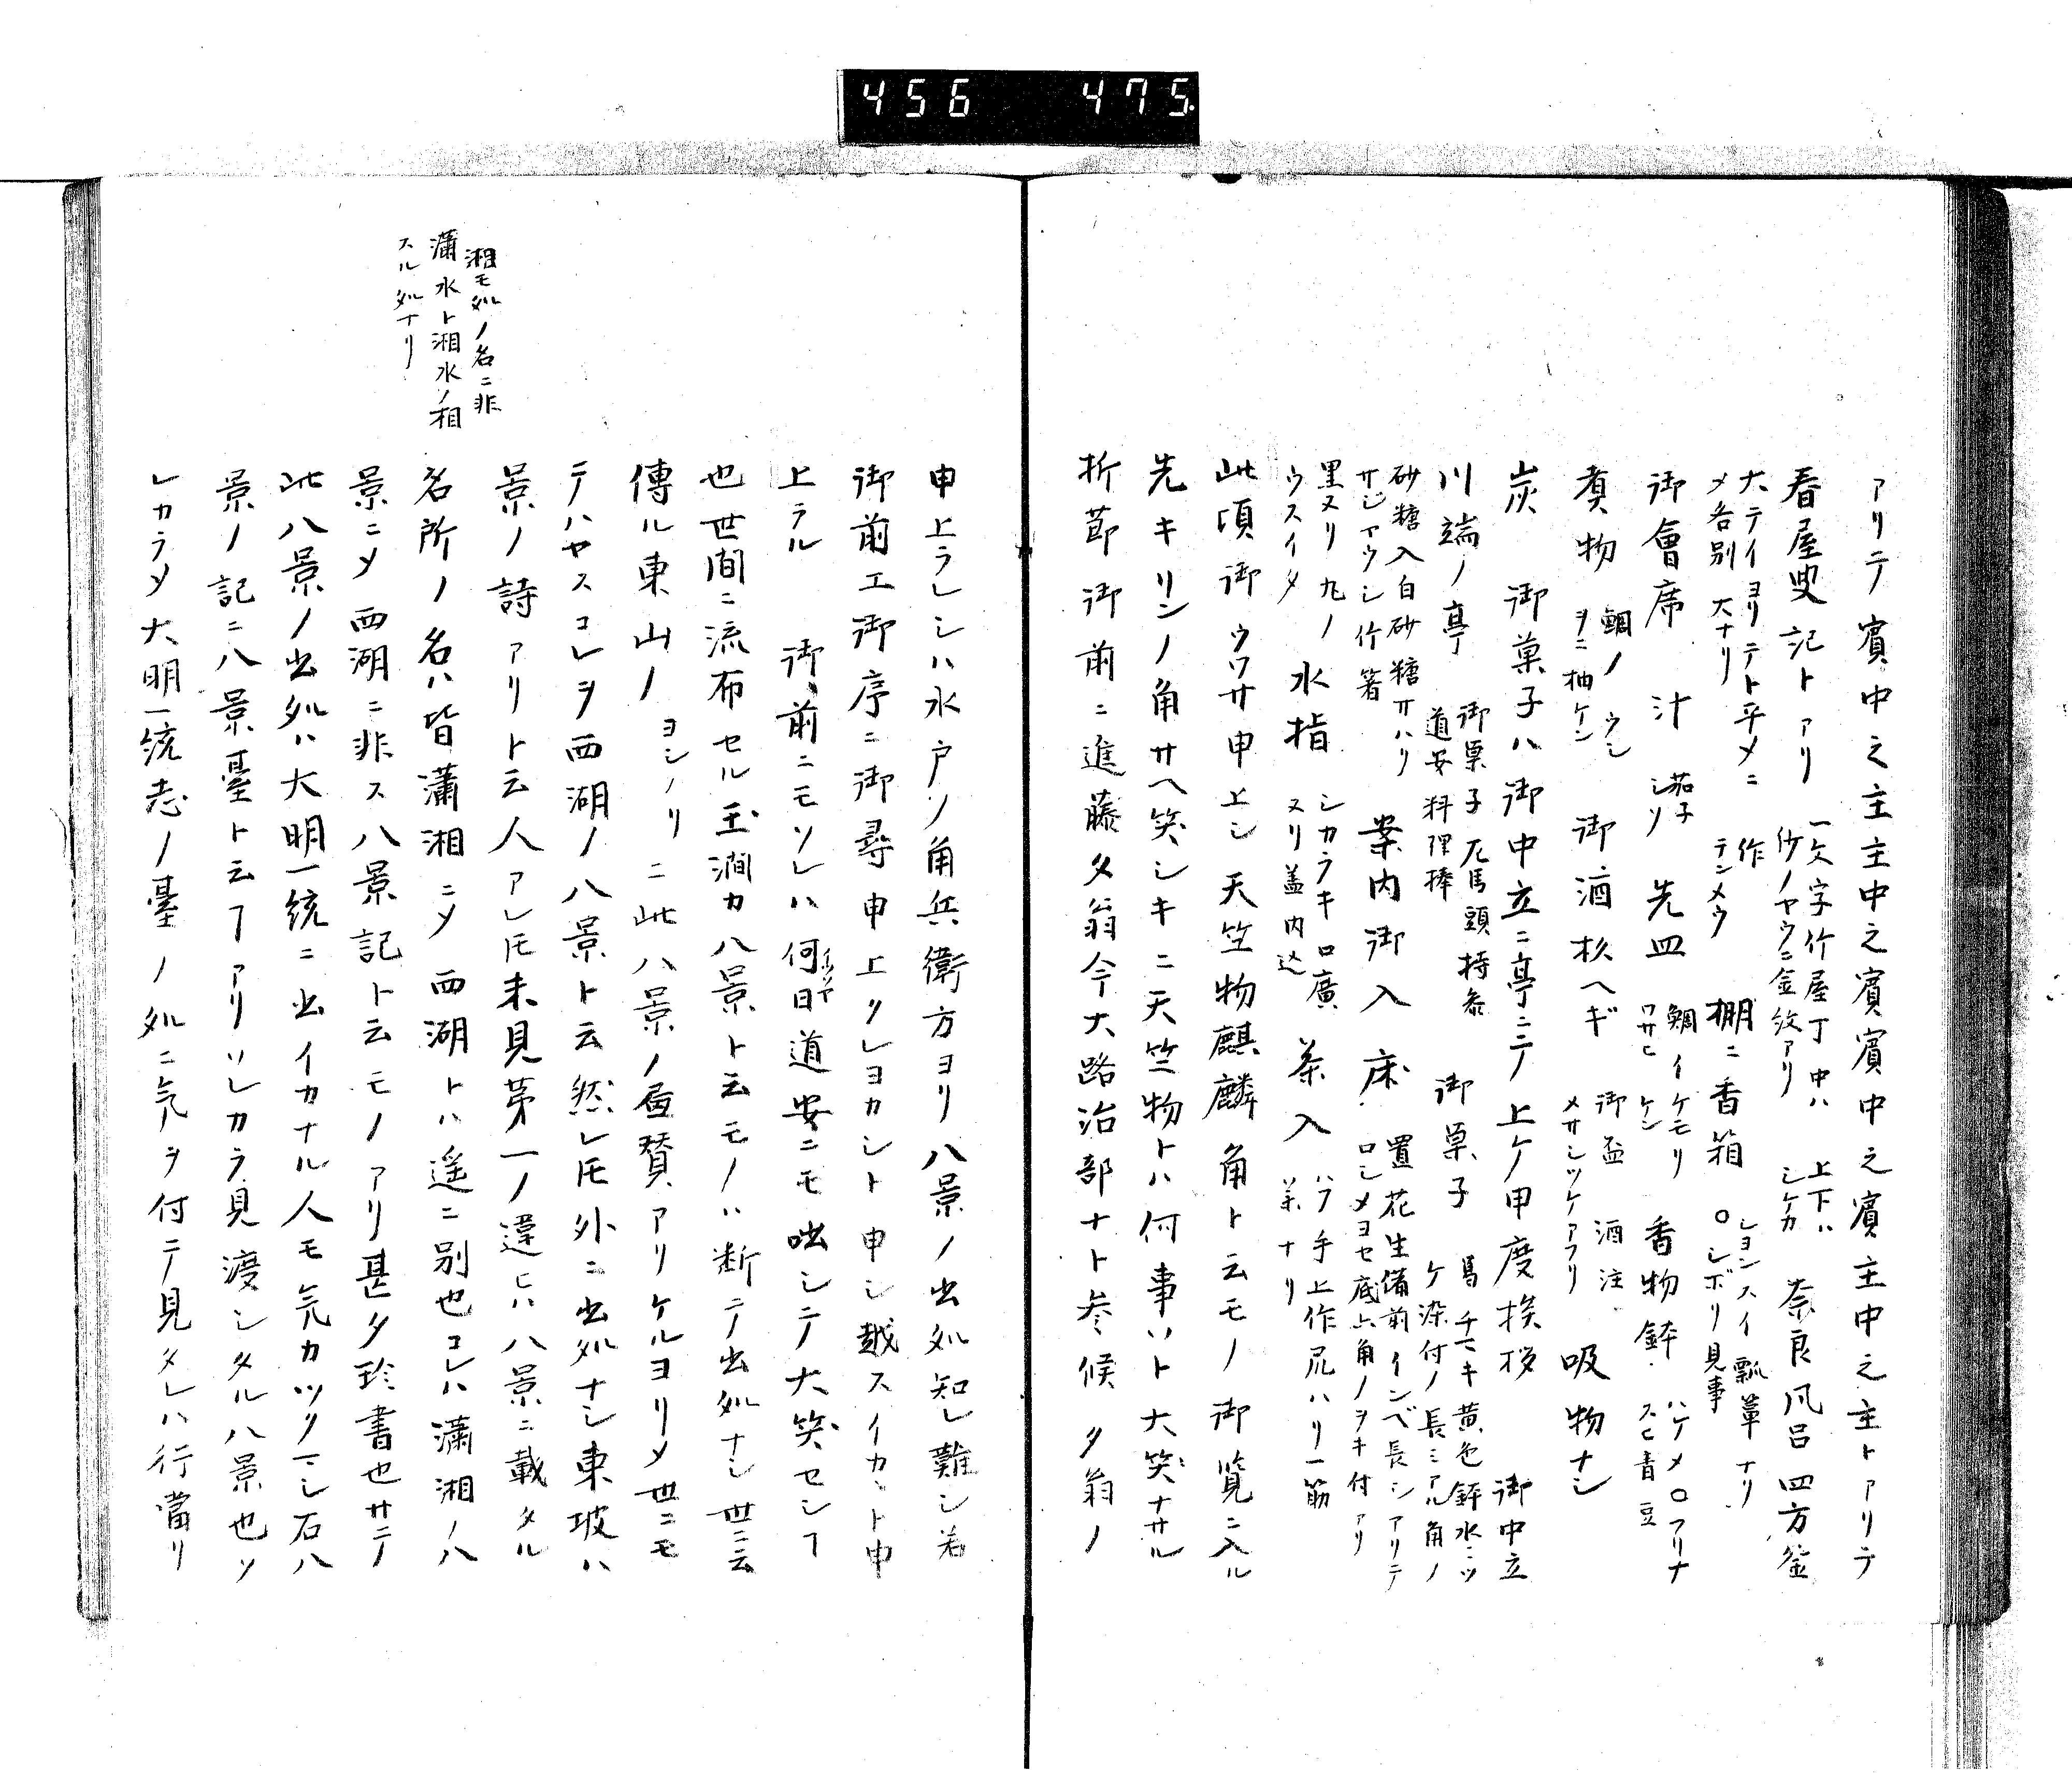 456 475
アリテ賓中之主主中之賓賓中之賓主中之主トアリテ
春屋叟記トアリ 一文字竹屋丁中ハ 上下ハ
紗ノヤウニ金紋アリ シケカ 奈良風呂四方釜
大テイヨリテト平メニ 作
メ各別大ナリ テンメウ 棚ニ香箱 レヨンスイ瓢箪ナリ
〇シボリ見事
御會席 汁 茄子
シソ 先皿 鯛イケモリ
ワサヒケン 香物鉢 ハケメ〇フリナ
スヒ青豆
煑物 鯛ノウシ
ヲニ柚ケン 御酒杉ヘギ 御盃 酒注
メサンツケアフリ 吸物ナシ
炭 御菓子ハ御中立ニ亭ニテ上ケノ申度挨拶 御中立
川端ノ亭 御菓子厄馬頭持参
道安料理捧 御菓子 馬チマキ黄色鉢水ニツ
ケ染付ノ長ミアル角ノ
砂糖入白砂糖サハリ
サジアウシ竹箸 案内御入 床 置花生備前インベ長シアリテ
ロシメヨセ底六角ノヲキ付アリ
黒ヌリ丸ノ
ウスイタ 水指 シカラキ口廣
ヌリ蓋内込 茶入 ハフ手上作尻ハリ一筋
茶ナリ
此頃御ウワサ申上シ天竺物麒麟角ト云モノ御覧ニ入ル
先キリンノ角サヘ笑シキニ天竺物トハ何事ソト大笑ナサル
折節御前ニ進藤夕翁今大路治部ナト参候夕翁ノ
申上ラレシハ水戸ソ角兵衛方ヨリ八景ノ出処知レ難シ若
御前エ御序ニ御尋申上クレヨカシト申シ越スイカヽト申
上ラル 御前ニモソレハ何日道安ニモ咄シテ大笑セシヿ
也世間ニ流布セル玉澗カ八景ト云モノハ断テ出処ナシ世ニ云
傳ル東山ノ ヨシノリ ニ此八景ノ畫賛アリケルヨリメ世ニモ
テハヤスコレヲ西湖ノ八景ト云然レ𪜈外ニ出処ナシ東坡ハ
景ノ詩アリト云人アレ𪜈未見第一ノ違ヒハ八景ニ載タル
湘モ処ノ名ニ非
瀟水ト湘水ノ相
スル処ナリ
名所ノ名ハ皆瀟湘ニメ西湖トハ遥ニ別也コレハ瀟湘ノ八
景ニメ西湖ニ非ス八景記ト云モノアリ甚タ珍書也サニテ
此八景ノ出処ハ大明一統ニ出イカナル人モ気カツクマシ石八
景ノ記ニ八景臺ト云ヿアリソレカラ見渡シタル八景也ソ
レカラメ大明一統志ノ臺ノ処ニ気ヲ付テ見タレハ行當リ